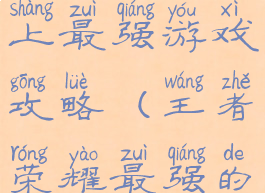 shàng zuì qiáng yóu xì
上最强游戏
gōng lüè wáng zhě
攻略(王者
róng yào zuì qiáng de
荣耀最强的